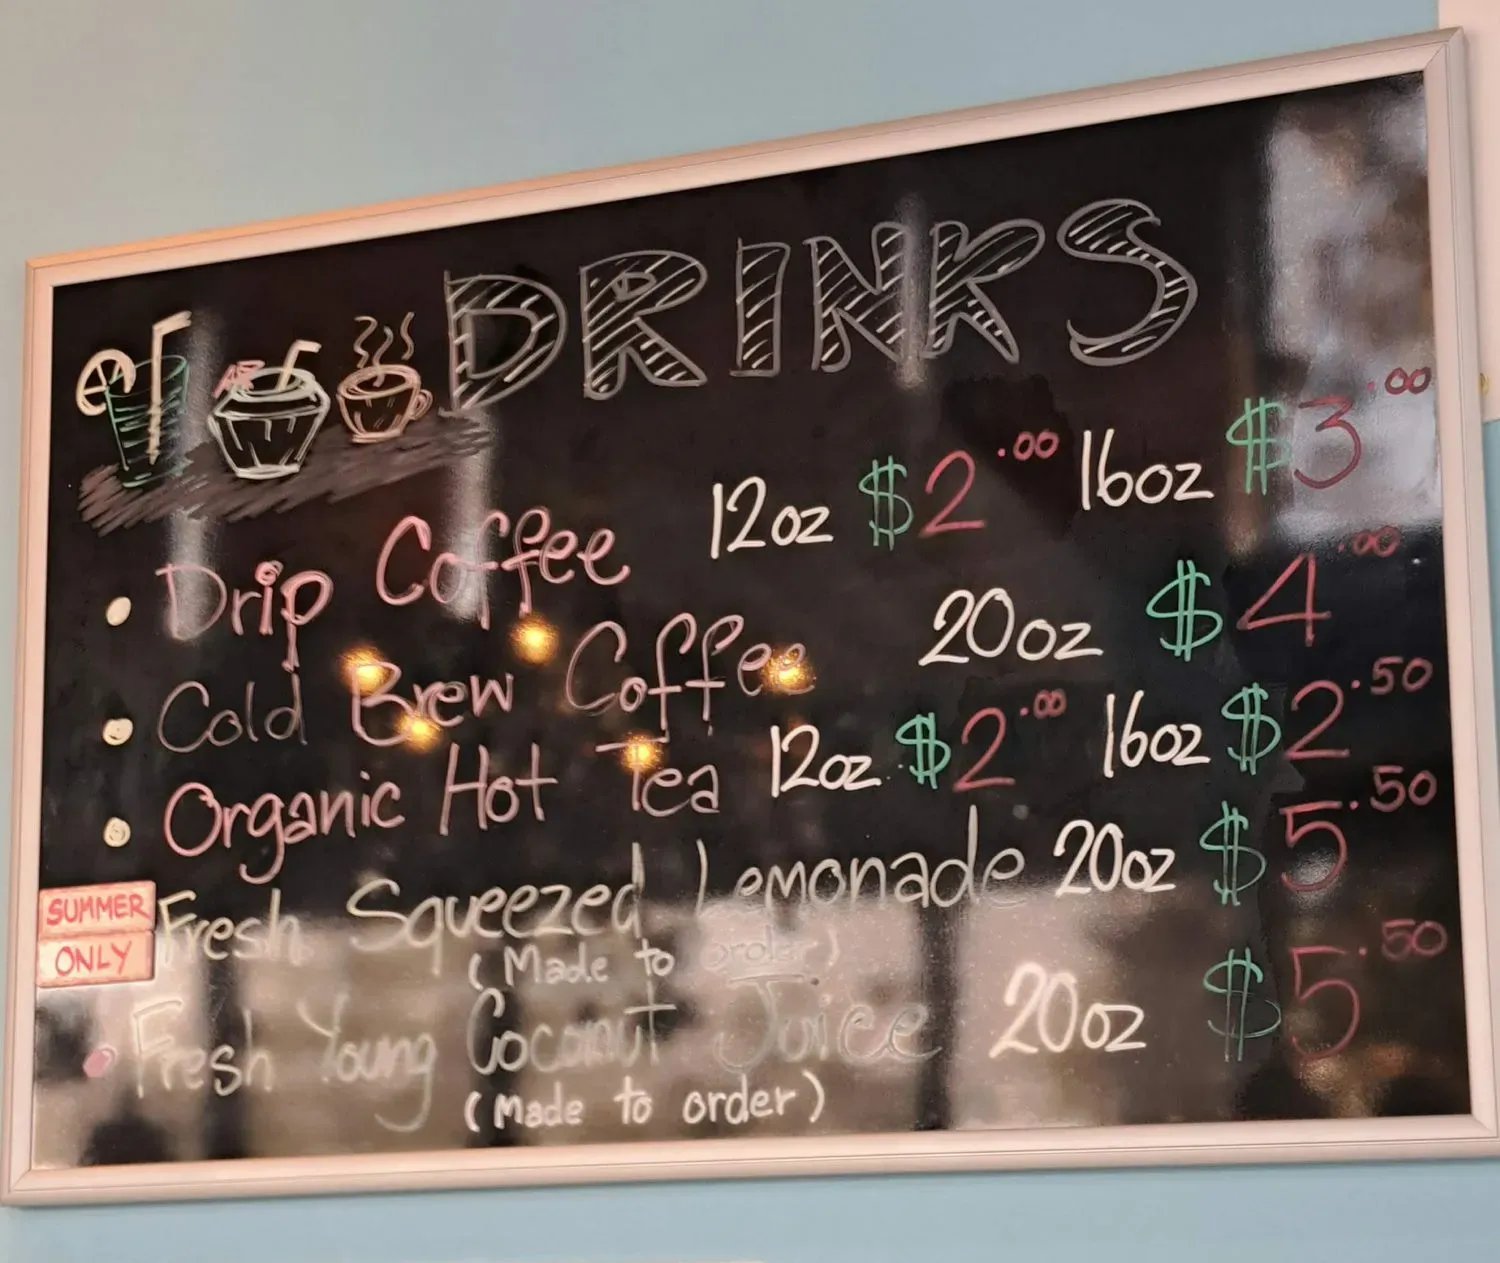 DRINKS
Drip Coffee 12oz $2.00 16oz $3.00
Cold Brew Coffee 20oz $4.00
Organic Hot Tea 12oz $2.00 16oz $2.50
SUMMER
ONLY
Fresh Squeezed Lemonade 20oz $5.50
(Made to order)
Fresh Young Coconut Juice 20oz $5.50
(Made to order)